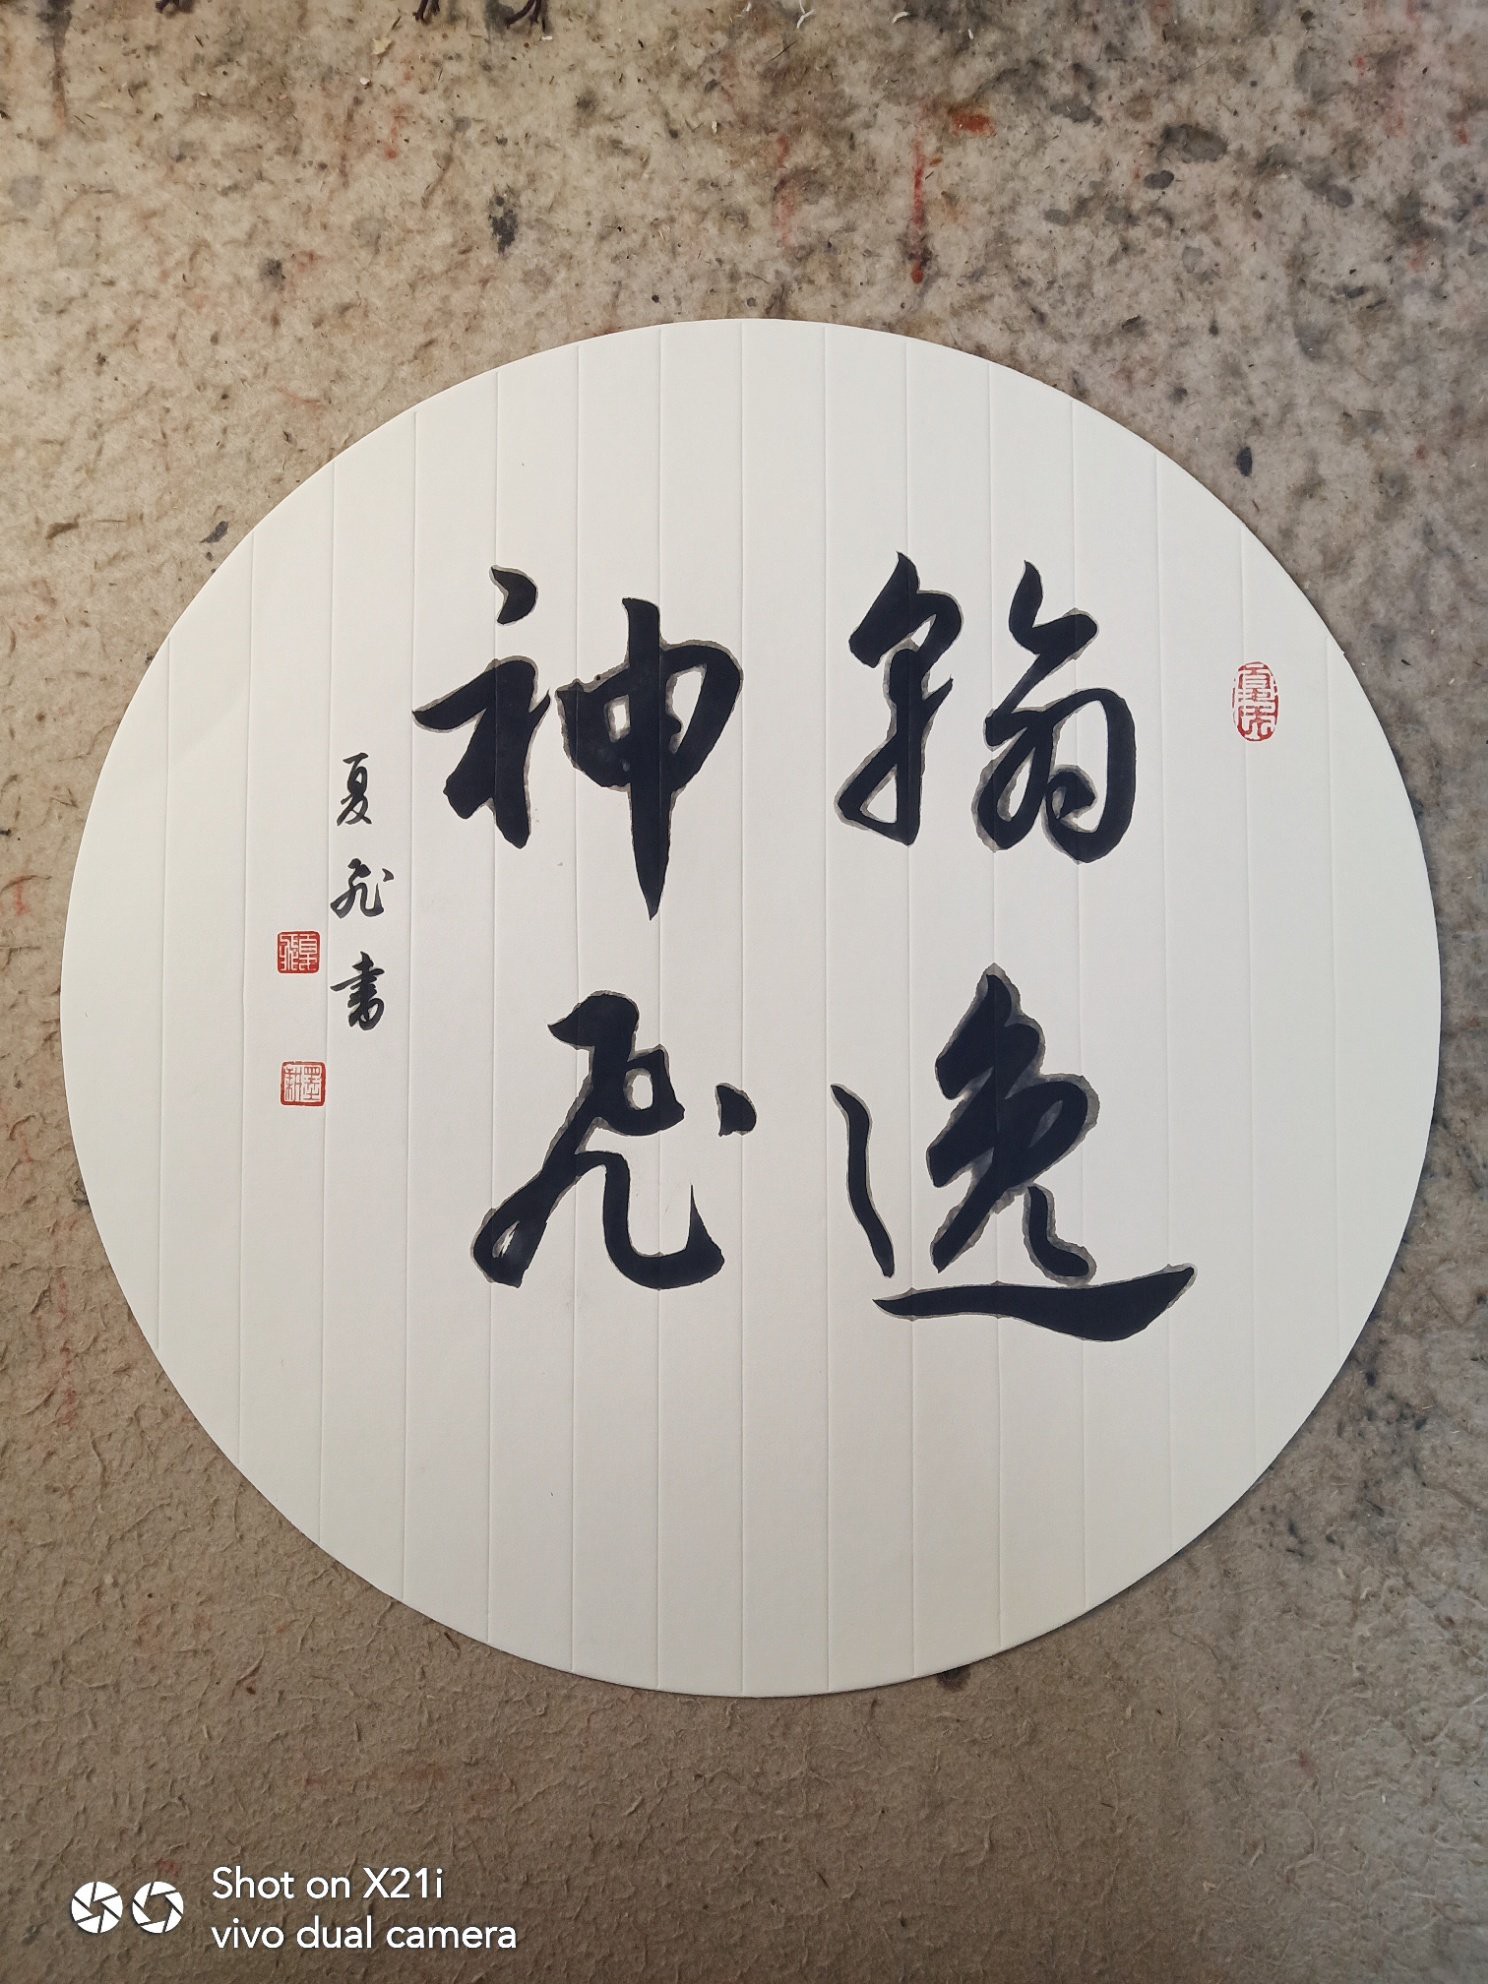 翰逸
神飛
夏飛書
Shot on X21i
vivo dual camera